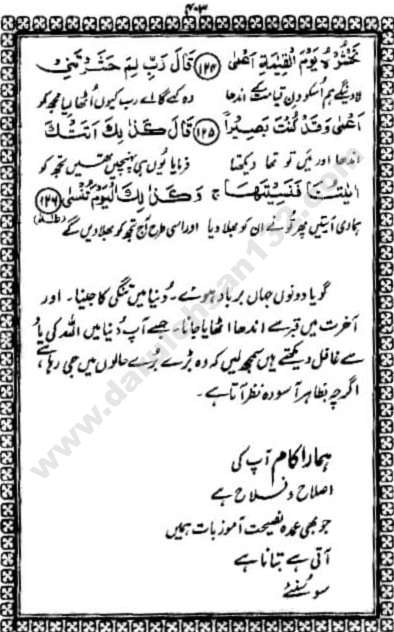 ۴۰۳
نَحْشُرُهٗ يَوْمَ الْقِيٰمَةِ اَعْمٰى ﴿۱۲۴﴾ قَالَ رَبِّ لِمَ حَشَرْتَنِيْٓ
لاویں گے ہم اُسکو دن قیامت کے اندھا وہ کہے گا اے رب کیوں اُٹھا لیا مجھ کو
اَعْمٰى وَقَدْ كُنْتُ بَصِيْرًا ﴿۱۲۵﴾ قَالَ كَذٰلِكَ اَتَتْكَ
اندھا اور میں تو تھا دیکھتا فرمایا یوں ہی پہنچیں تھیں تجھ کو
اٰيٰتُنَا فَنَسِيْتَهَا ج وَكَذٰلِكَ الْيَوْمَ تُنْسٰى ﴿۱۲۶﴾
ہماری آیتیں پھر تو نے ان کو بھلا دیا اور اسی طرح آج تجھ کو بھلا دیں گے (طٰهٰ)
گویا دونوں جہاں برباد ہوئے۔ دُنیا میں تنگی کا جینا۔ اور
آخرت میں قبر سے اندھا اٹھایا جانا۔ جسے آپ دُنیا میں اللہ کی یاد
سے غافل دیکھتے ہیں سمجھ لیں کہ وہ بڑے بُرے حالوں میں جی رہا ہے،
اگرچہ بظاہر آسودہ نظر آتا ہے۔
ہمارا کام آپ کی
اصلاح و فلاح ہے
جو بھی عمدہ نصیحت آموز بات ہمیں
آتی ہے بتانا ہے
سو سُنئے
www.darulehsan133.com